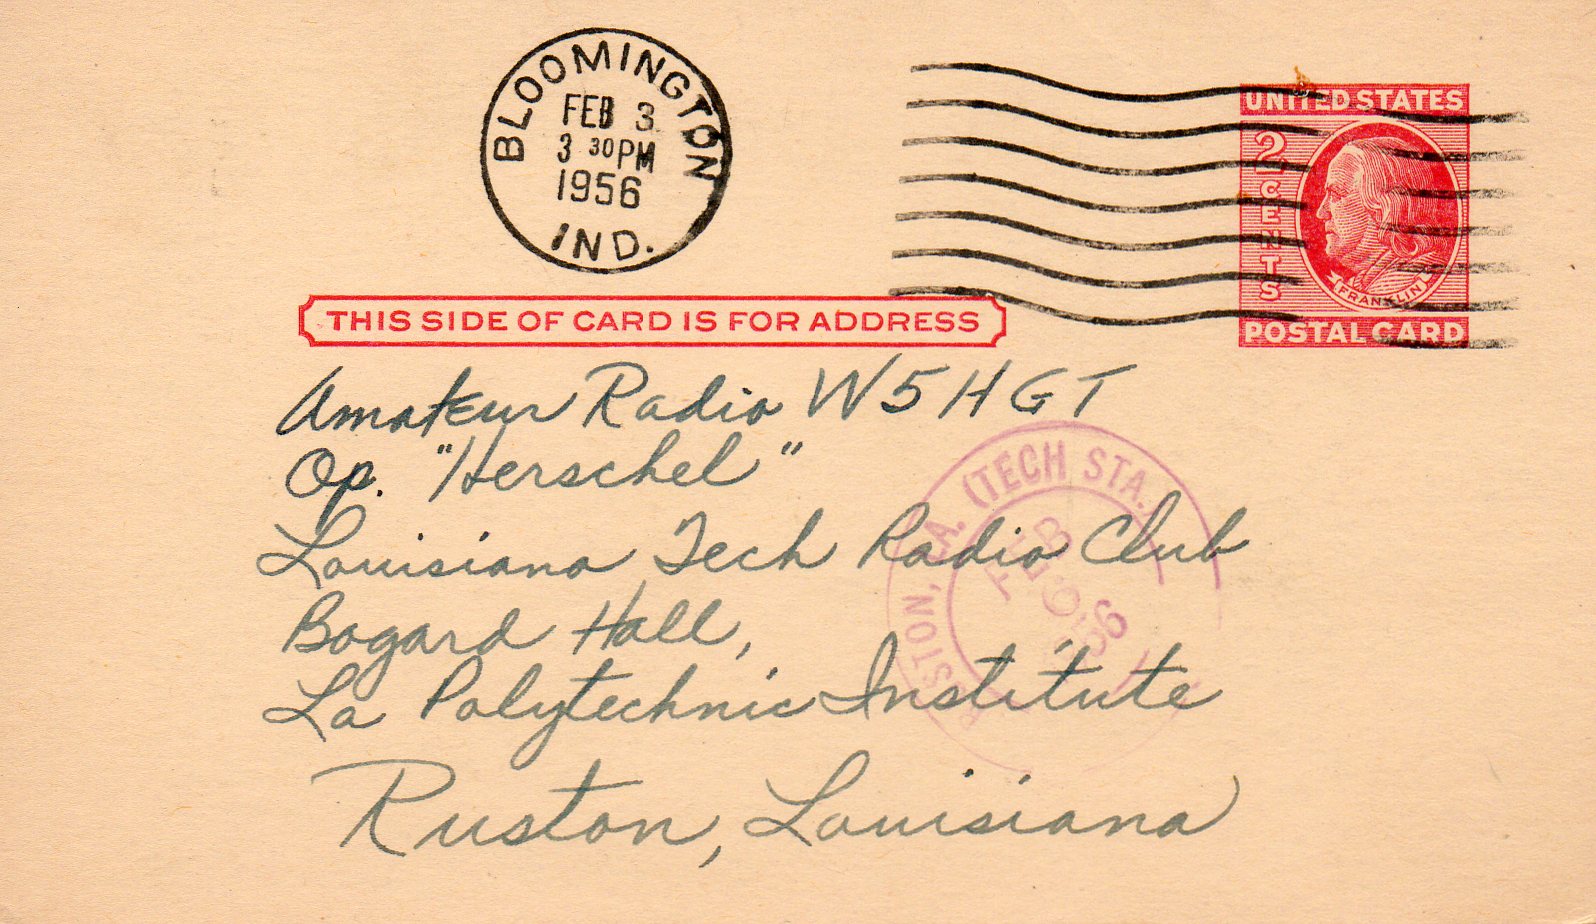 BLOOMINGTON
FEB 3
3 30 PM
1956
IND.
UNITED STATES
2 CENTS
FRANKLIN
POSTAL CARD
THIS SIDE OF CARD IS FOR ADDRESS
Amateur Radio W5HGT
Op. "Herschel"
Louisiana Tech Radio Club
Bogard Hall,
La Polytechnic Institute
Ruston, Louisiana
RUSTON, LA. (TECH STA.)
FEB
6
1956